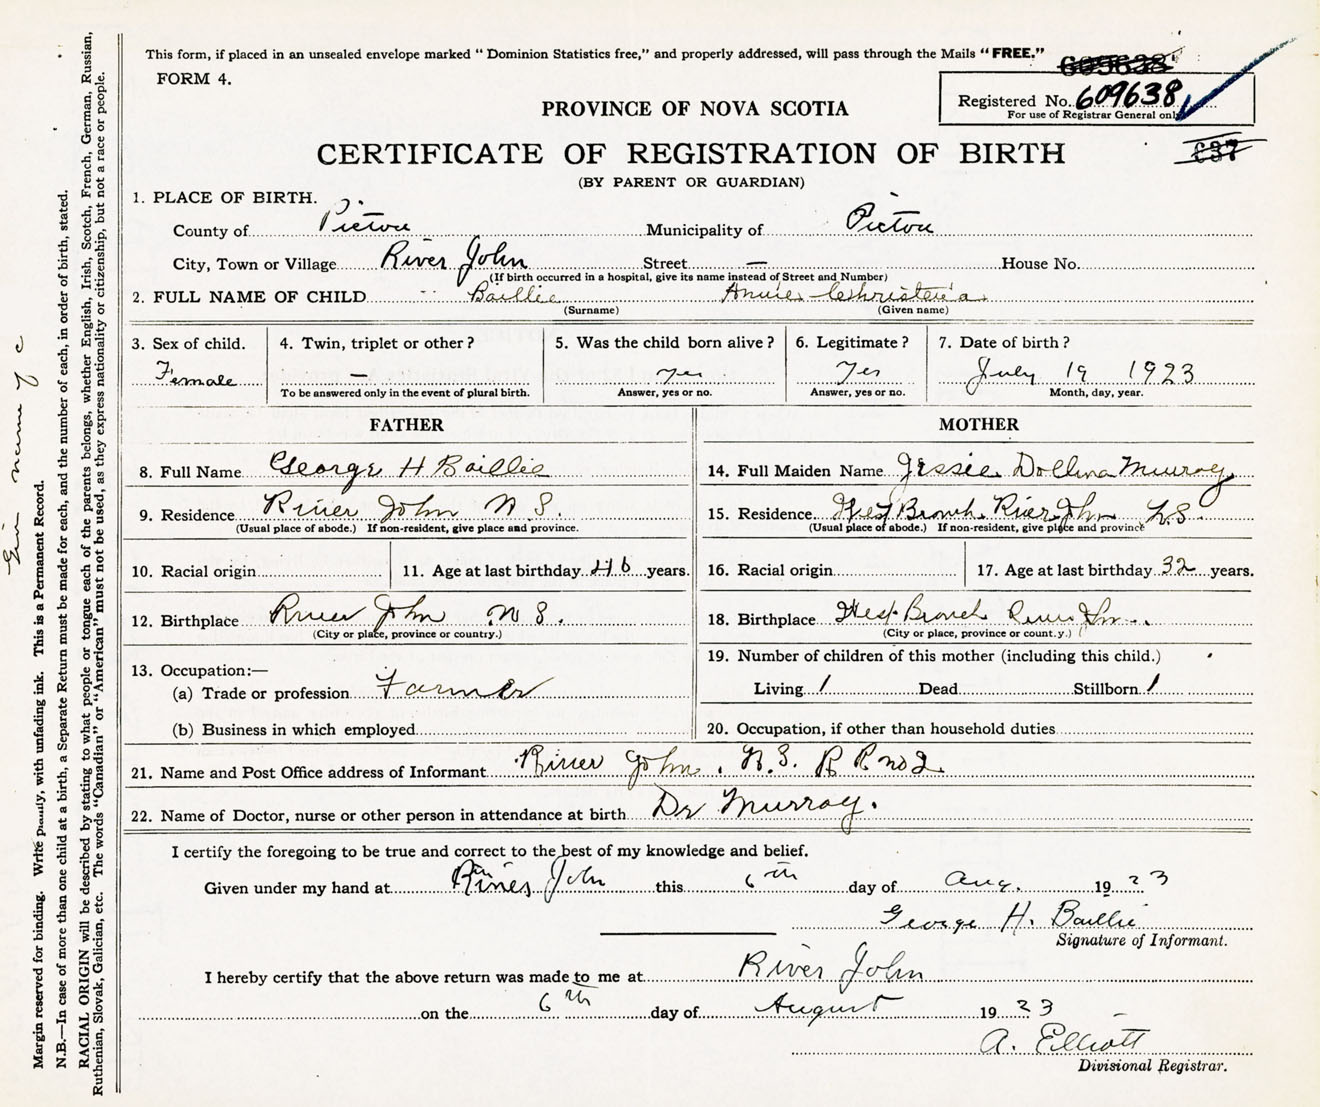 This form, if placed in an unsealed envelope marked “ Dominion Statistics free,” and properly addressed, will pass through the Mails “FREE.”
FORM 4.
605638
Registered No. 609638
For use of Registrar General only
PROVINCE OF NOVA SCOTIA
637
CERTIFICATE OF REGISTRATION OF BIRTH
(BY PARENT OR GUARDIAN)
1. PLACE OF BIRTH.
County of Pictou Municipality of Pictou
City, Town or Village River John Street — House No.
(If birth occurred in a hospital, give its name instead of Street and Number)
2. FULL NAME OF CHILD Baillie Annie Christena
(Surname) (Given name)
3. Sex of child. 4. Twin, triplet or other ? 5. Was the child born alive ? 6. Legitimate ? 7. Date of birth ?
Female — yes Yes July 19 1923
To be answered only in the event of plural birth. Answer, yes or no. Answer, yes or no. Month, day, year.
FATHER MOTHER
8. Full Name George H Baillie 14. Full Maiden Name Jessie Dollina Murray
9. Residence River John N S. 15. Residence West Branch River John N.S
(Usual place of abode.) If non-resident, give place and province. (Usual place of abode.) If non-resident, give place and province
10. Racial origin 11. Age at last birthday 46 years. 16. Racial origin 17. Age at last birthday 32 years.
12. Birthplace River John N S. 18. Birthplace West Branch River John
(City or place, province or country.) (City or place, province or count.y.)
13. Occupation:— 19. Number of children of this mother (including this child.)
(a) Trade or profession Farmer Living 1 Dead Stillborn 1
(b) Business in which employed 20. Occupation, if other than household duties
21. Name and Post Office address of Informant River John, N.S. R R no 2
22. Name of Doctor, nurse or other person in attendance at birth Dr Murray.
I certify the foregoing to be true and correct to the best of my knowledge and belief.
Given under my hand at River John this 6th day of Aug. 1923
George H. Baillie
Signature of Informant.
I hereby certify that the above return was made to me at River John
on the 6th day of August 1923
A. Elliott
Divisional Registrar.
name of c
Margin reserved for binding. Write plainly, with unfading ink. This is a Permanent Record.
N.B.—In case of more than one child at a birth, a Separate Return must be made for each, and the number of each, in order of birth, stated.
RACIAL ORIGIN will be described by stating to what people or tongue each of the parents belongs, whether English, Irish, Scotch, French, German, Russian,
Ruthenian, Slovak, Galician, etc. The words “Canadian” or “American” must not be used, as they express nationality or citizenship, but not a race or people.